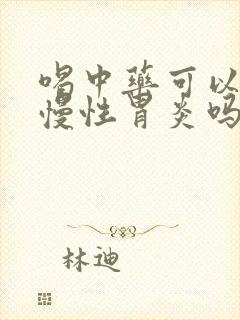 喝中药可以
慢性胃炎吗
林迪